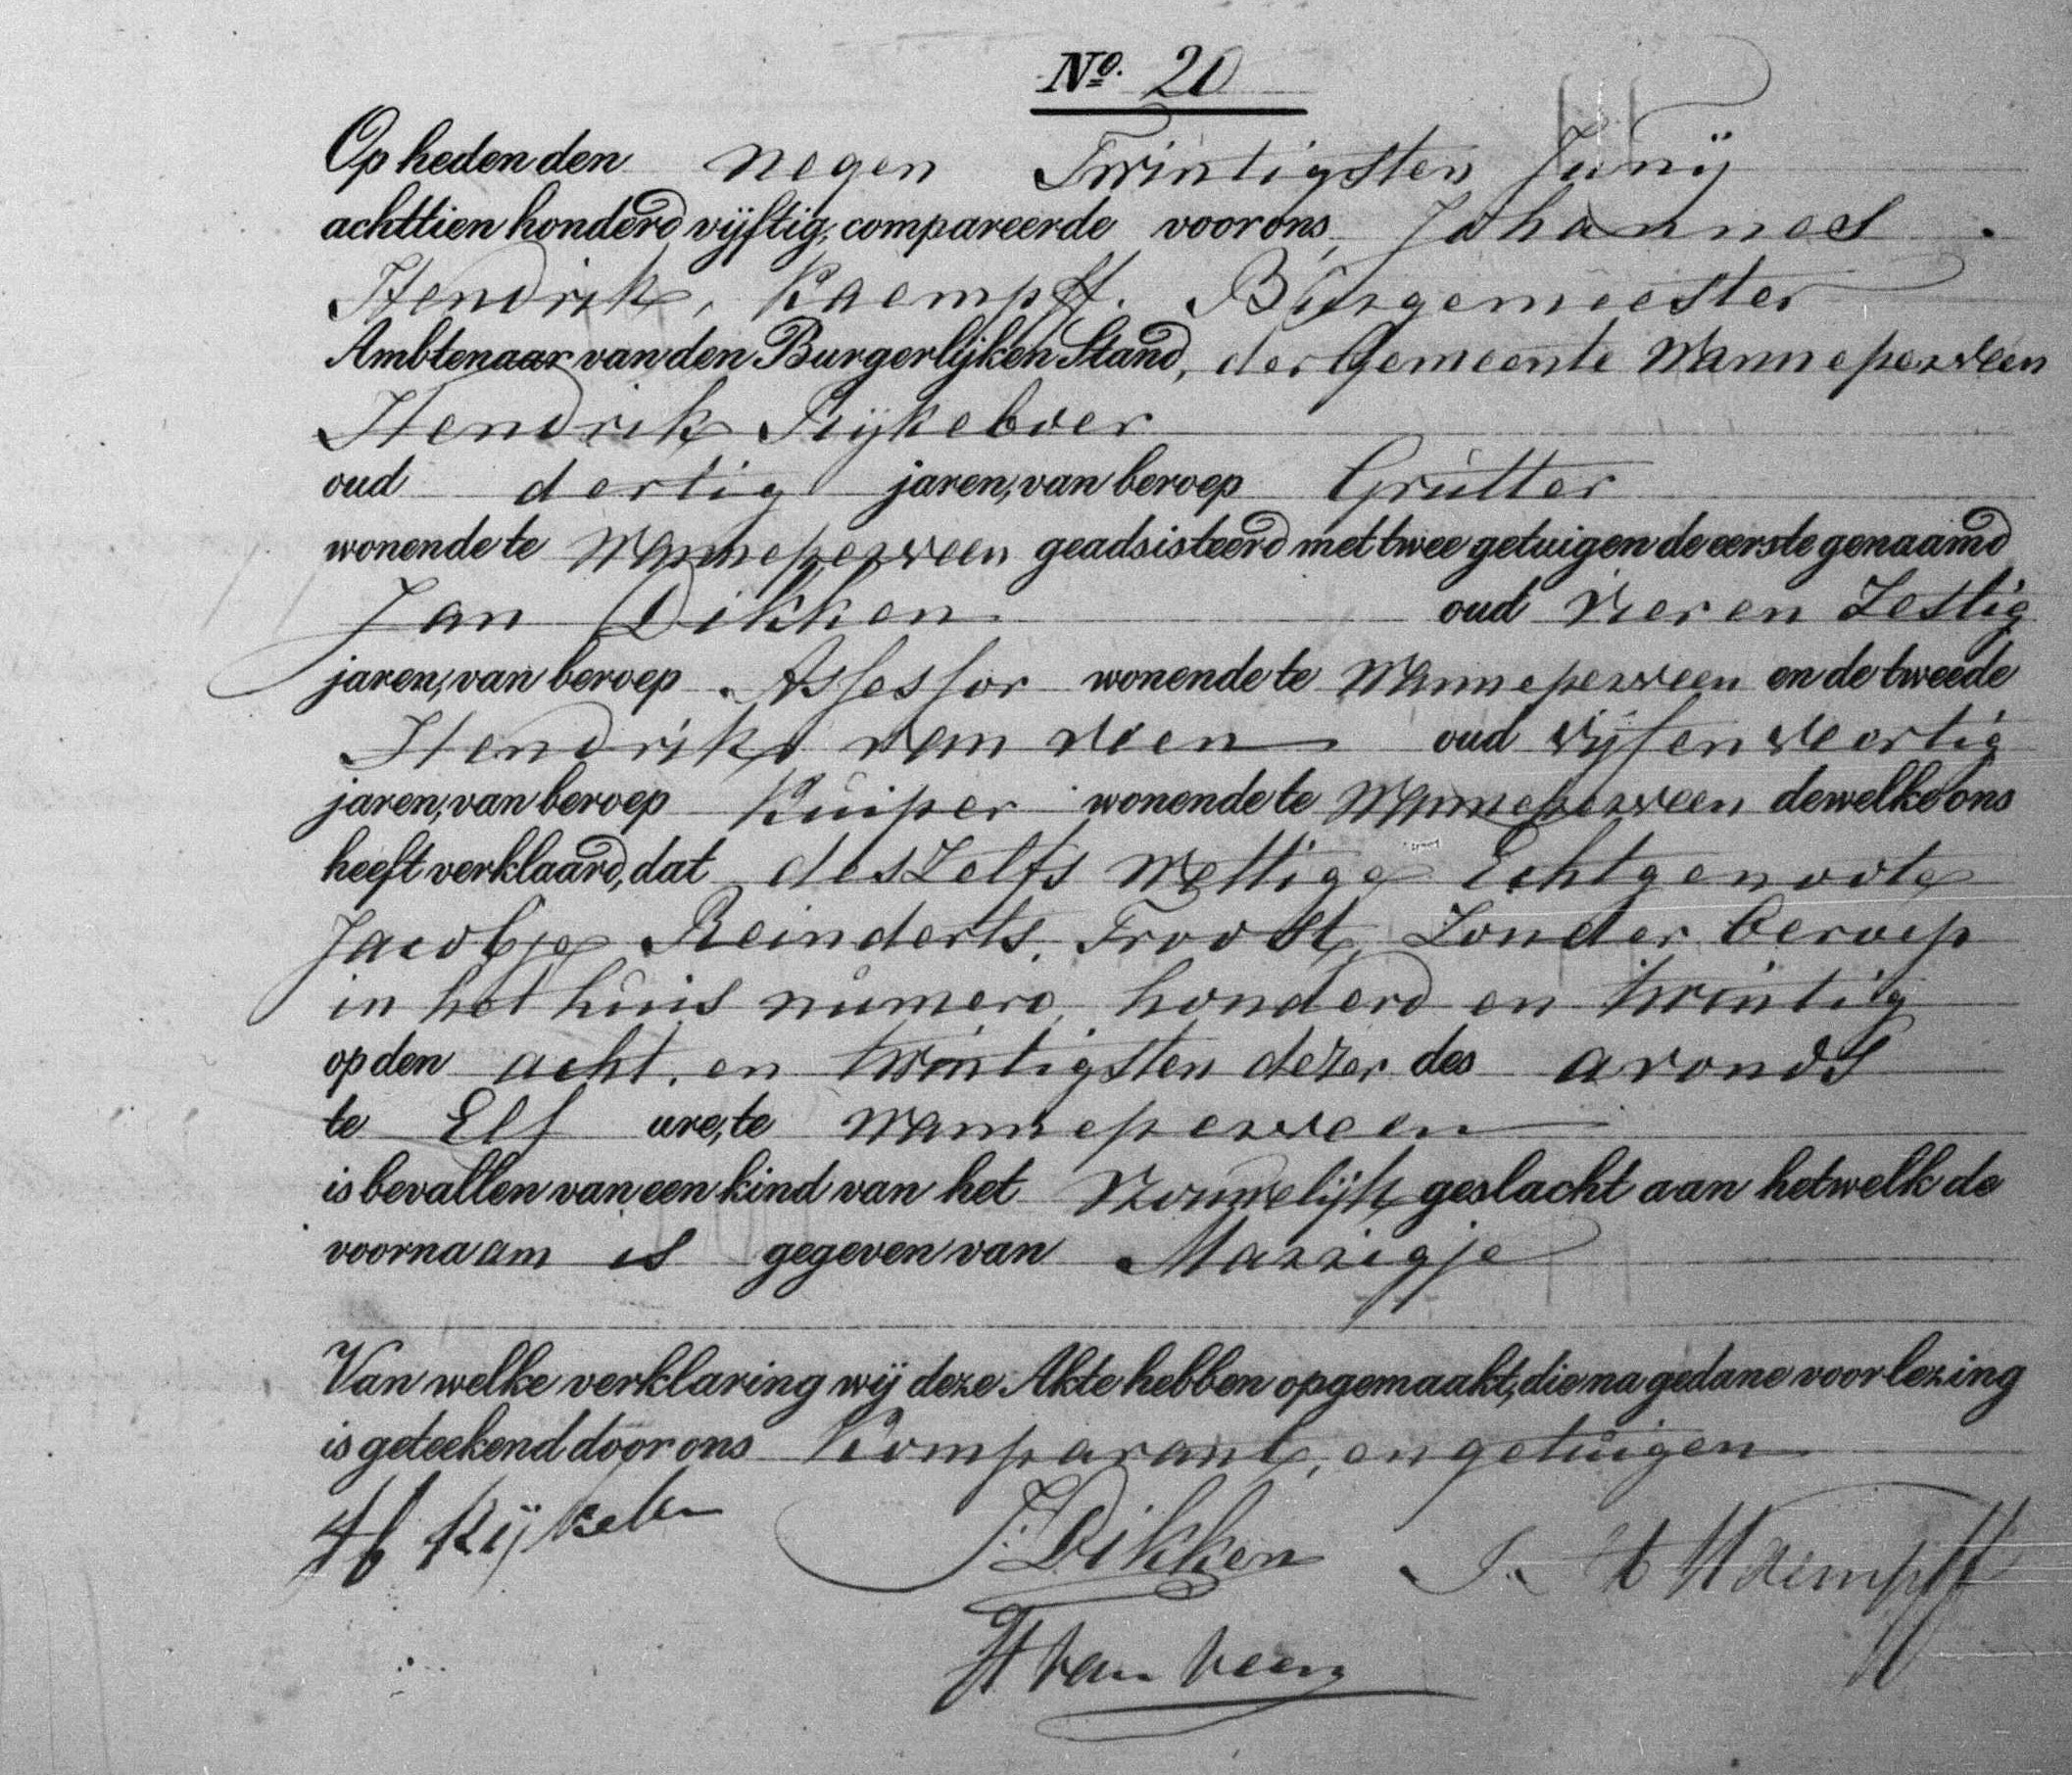 No. 20
Op heden den negen Twintigsten Junij
achttien honderd vijftig, compareerde voor ons, Johannes
Hendrik, Kaempff. Burgemeester
Ambtenaar van den Burgerlijken Stand, der Gemeente Wanneperveen
Hendrik Rijkeboer
oud dertig jaren, van beroep Grutter
wonende te Wanneperveen geadsisteerd met twee getuigen de eerste genaamd
Jan Dikken oud Vier en Zestig
jaren, van beroep Assessor wonende te Wanneperveen en de tweede
Hendrik van Veen oud vijf en veertig
jaren, van beroep Kuiper wonende te Wanneperveen dewelke ons
heeft verklaard, dat deszelfs Wettige Echtgenoote
Jacobje Reinderts, Troost, Zonder beroep
in het huis numero, honderd en twintig
op den acht, en twintigsten dezer des avonds
te Elf ure, te Wanneperveen
is bevallen van een kind van het Vrouwelijk geslacht aan hetwelk de
voornaam is gegeven van Marrigje
Van welke verklaring wij deze Akte hebben opgemaakt, die na gedane voorlezing
is geteekend door ons Komparant, en getuigen
J. Dikken J H Kaempff
H van Veen